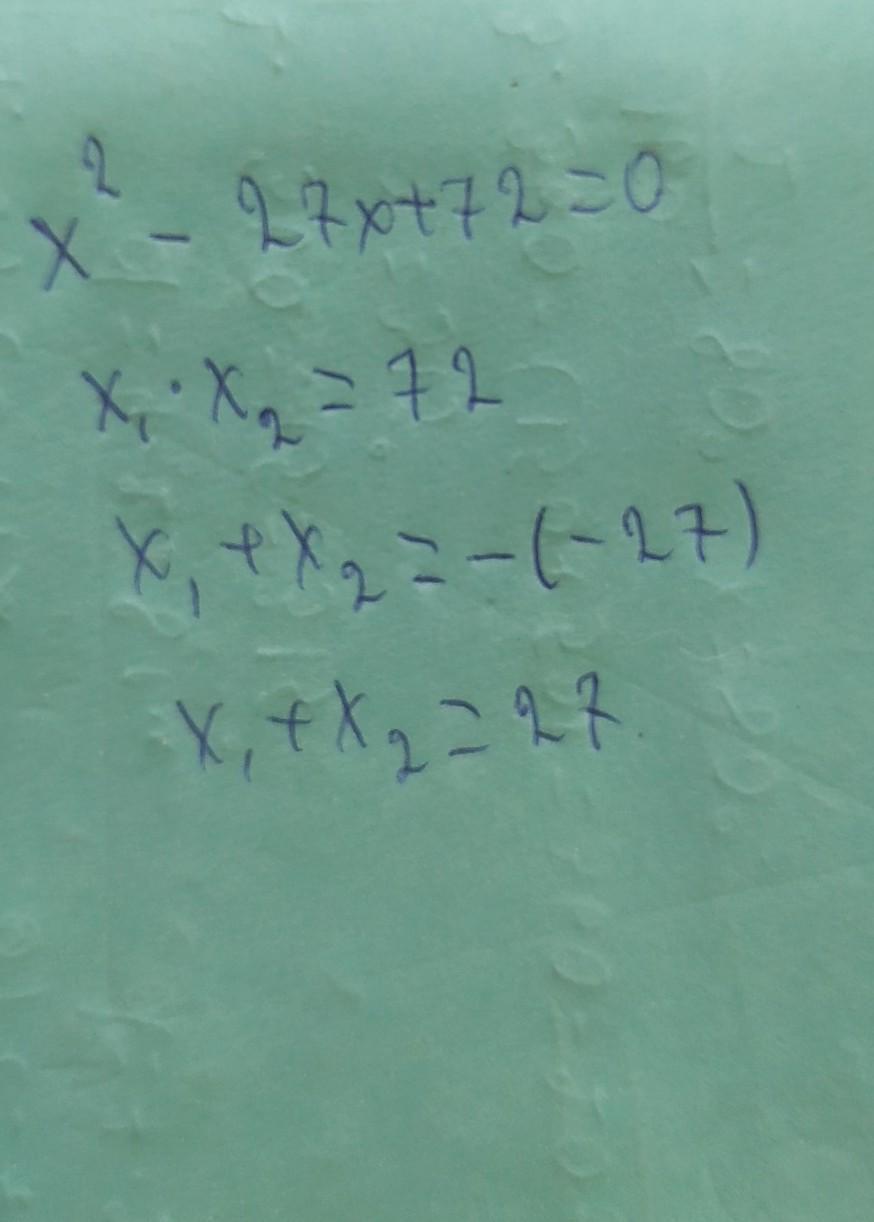 x² - 27x+72=0
x₁ · x₂ = 72
x₁ + x₂ = -(-27)
x₁ + x₂ = 27.